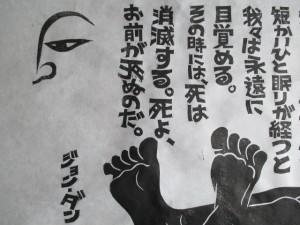 短かひと眠りが経つと
我々は永遠に
目覚める。
その時には、死は
消滅する。死よ、
お前が死ぬのだ。
ジョン・ダン